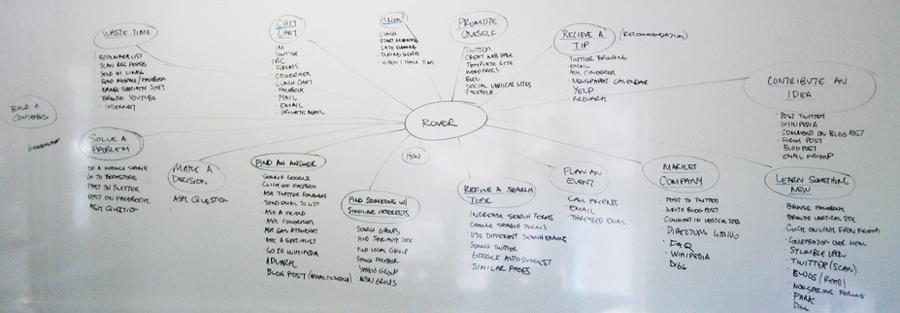 WASTE TIME
SCAN RSS FEEDS
BROWSE YOUTUBE
INTERNET
CHIT CHAT
IM
TWITTER
IRC
FORUMS
COWORKER
LUNCH CHAT
FACEBOOK
MAIL
EMAIL
PRIVATE MAIL
WHEN?
LUNCH
START MORNING
LATE EVENING
DURING WORK
WHEN I HAVE TIME
PROMOTE ONESELF
TWITTER
CREATE WEB PAGE
TEMPLATE SITE
WORDPRESS
BLOG
SOCIAL VERTICAL SITES
FACEBOOK
RECIEVE A TIP
(RECOMMENDATION)
EMAIL
ASK COWORKER
NEWSPAPER CALENDAR
YELP
AARDVARK
CONTRIBUTE AN IDEA
POST TWITTER
WIKIPEDIA
COMMENT ON BLOG POST
FORUM POST
BLOG POST
EMAIL FRIEND
BUILD A CONSENSUS
ROVER
HOW
SOLVE A PROBLEM
DO A GOOGLE SEARCH
GO TO BOOKSTORE
POST ON TWITTER
POST ON FACEBOOK
ASK QUESTION
MAKE A DECISION
ASK QUESTION
FIND AN ANSWER
SEARCH GOOGLE
ASK TWITTER FOLLOWERS
SEND EMAIL TO LIST
ASK A FRIEND
ASK COWORKER
ASK GAS ATTENDANT
ASK A SPECIALIST
GO TO WIKIPEDIA
AARDVARK
FIND SOMEONE W/ SIMILAR INTERESTS
SEARCH GROUPS
FIND SPECIALTY SITE
FIND LOCAL GROUP
SEARCH FACEBOOK
YAHOO GROUP
MSN GROUPS
REFINE A SEARCH TOPIC
INCREASE SEARCH TERMS
CHANGE SEARCH TERMS
USE DIFFERENT SEARCH ENGINES
SEARCH TWITTER
GOOGLE AUTOSUGGEST
SIMILAR PAGES
PLAN AN EVENT
CALL FRIENDS
EMAIL
THREADED EMAIL
MARKET COMPANY
POST TO TWITTER
WRITE BLOG POST
COMMENT IN VERTICAL SITES
DIRECTORY LISTING
FAQ
WIKIPEDIA
DIGG
LEARN SOMETHING NEW
BROWSE FACEBOOK
BROWSE VERTICAL SITE
CLICK ON LINK FROM FRIEND
CONVERSATION OVER MEAL
STUMBLE UPON
TWITTER (SCAN)
BLOGS (READ)
NON-SPECIFIC FORUMS
FARK
DIGG